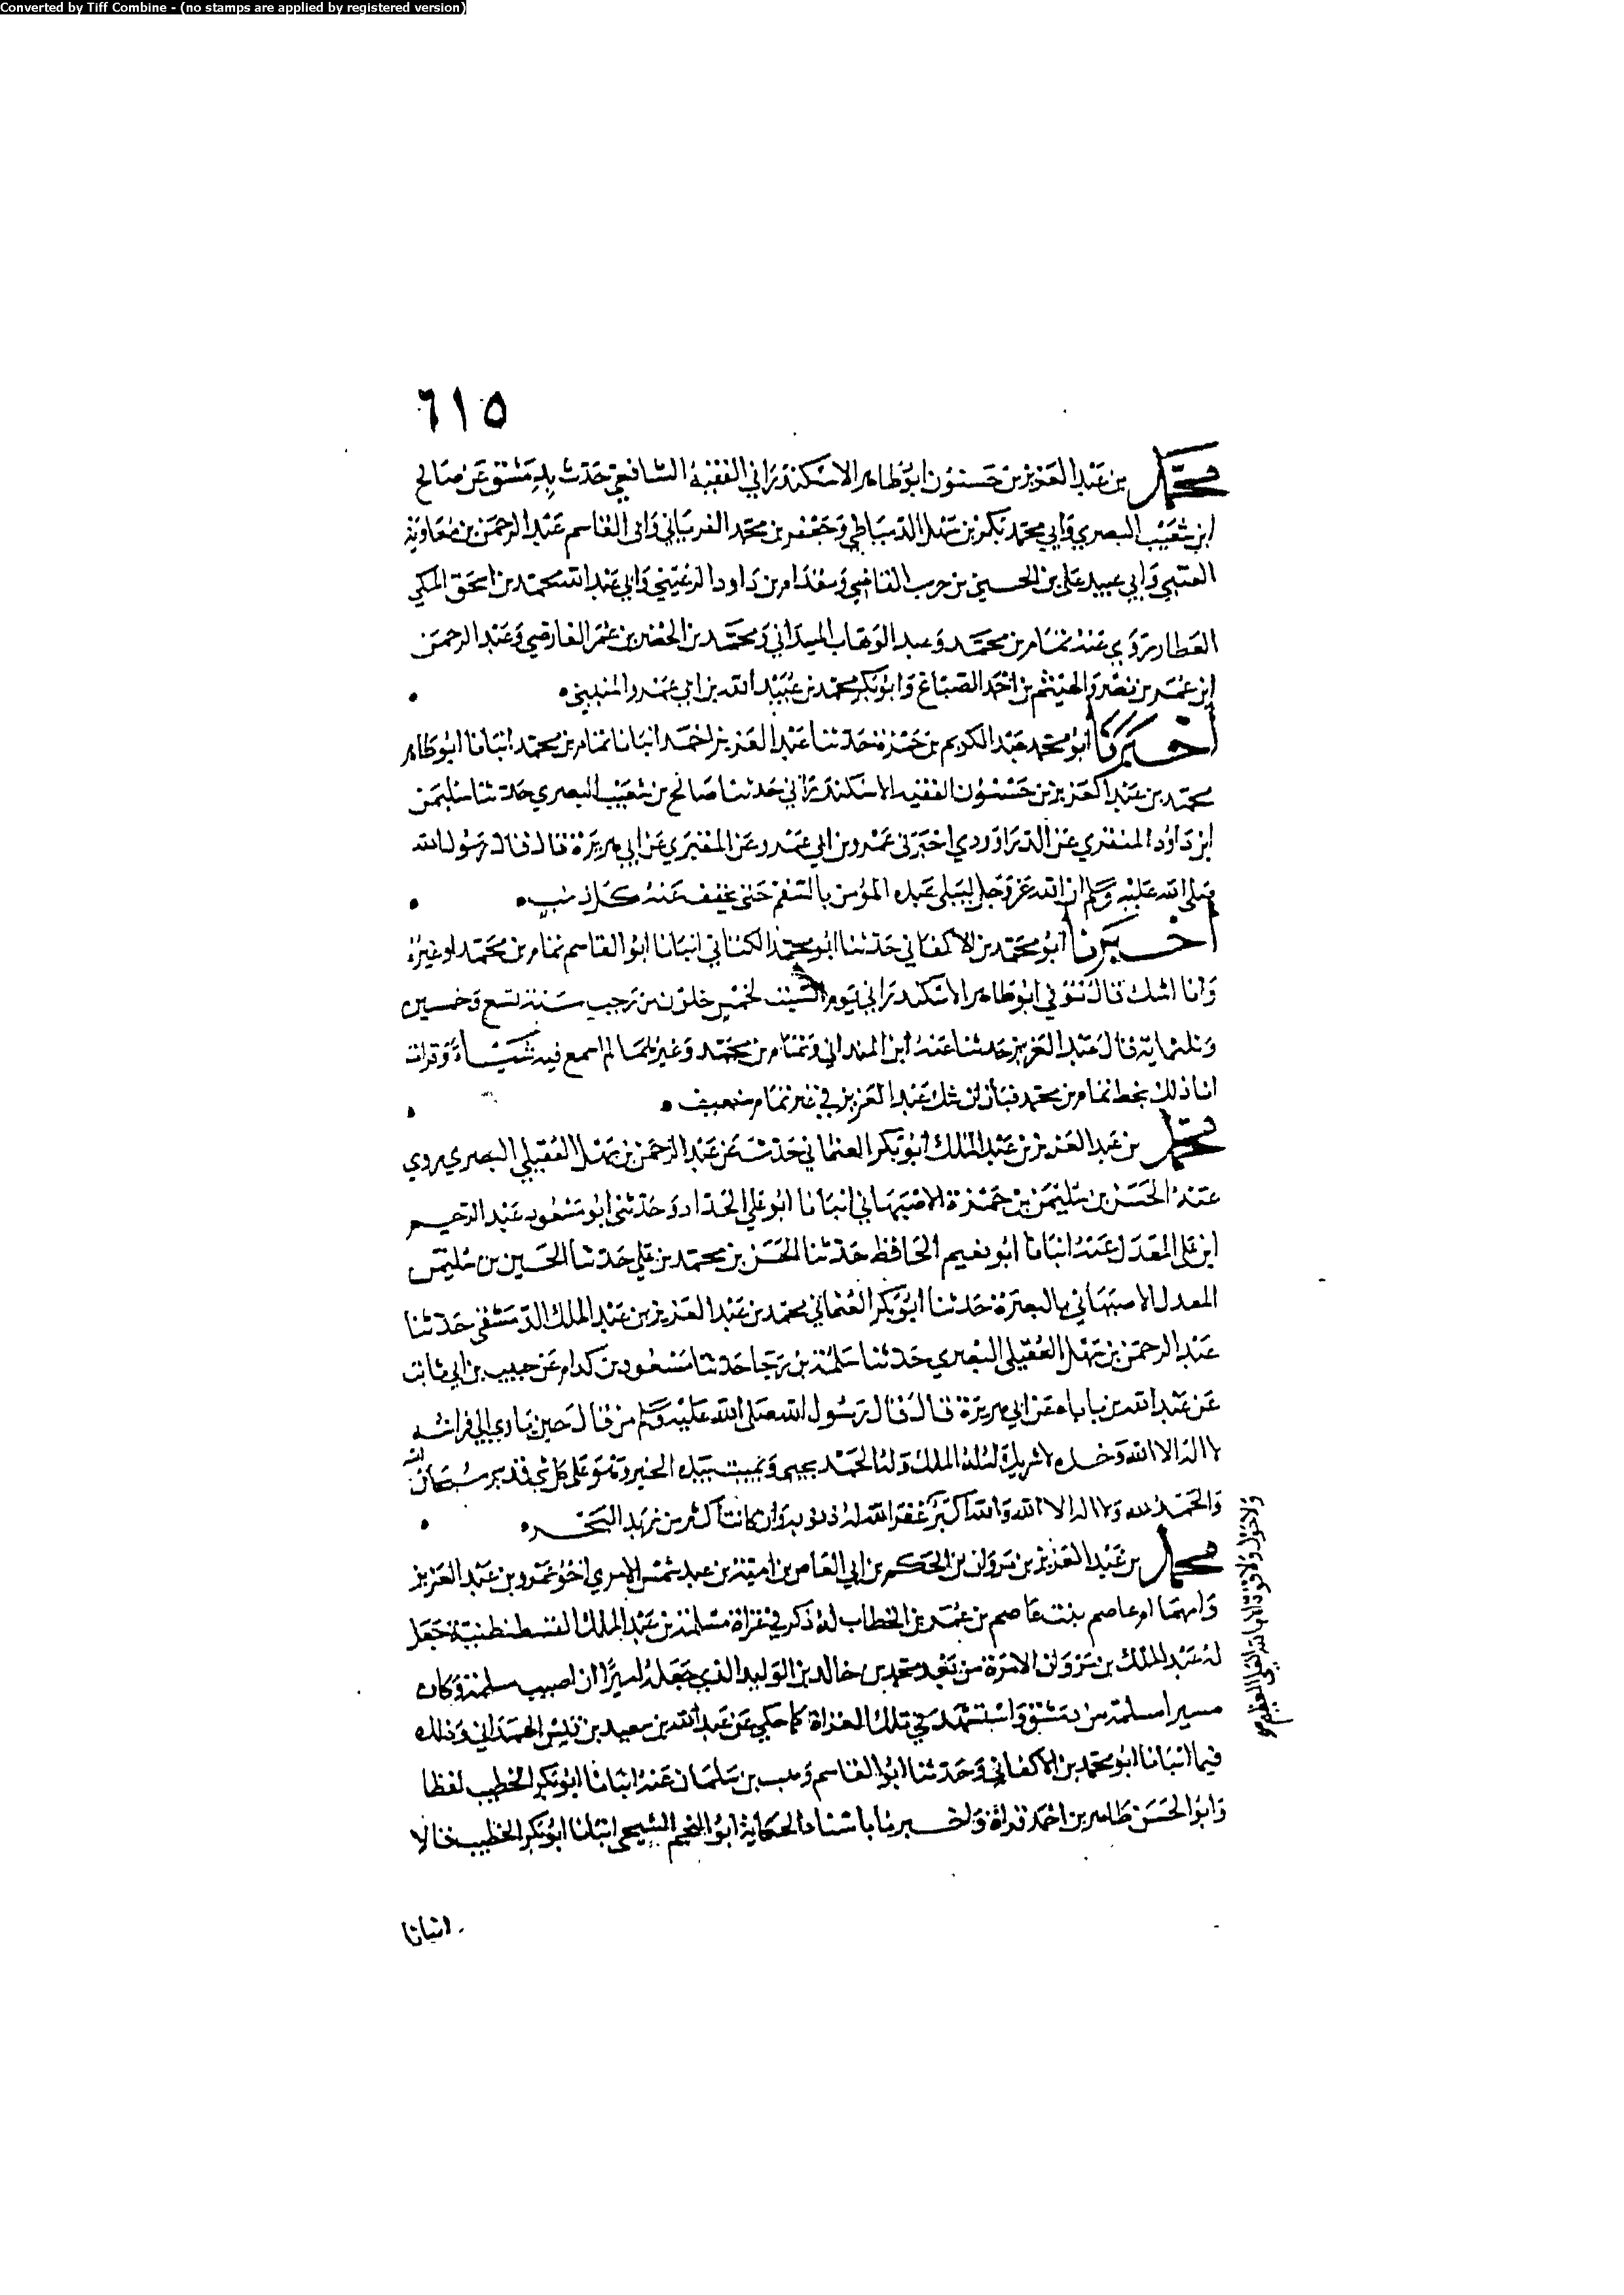 Converted by Tiff Combine - (no stamps are applied by registered version)
٦١٥
محمد بن عبد العزيز بن حسنون ابو طاهر الاسكندراني الفقيه الشافعي حدث بدمشق عن صالح
ابن شعيب البصري وابي محمد بكر بن سهل الدمياطي وجعفر بن محمد الفريابي وابي القاسم عبد الرحمن بن معاوية
العتبي وابي عبيد علي بن الحسين بن حرب القاضي ومقدام بن داود الرعيني وابي عبد الله محمد بن اسحق المكي
العطار روي عنه تمام بن محمد وعبد الوهاب الميداني ومحمد بن الخضر بن عمر الفارضي وعبد الرحمن
ابن عمر بن نصر والهيثم بن احمد الصباغ وابو بكر محمد بن عبيد الله بن ابي عمرو المنيني
اخبرنا ابو محمد عبد الكريم بن حمزة حدثنا عبد العزيز احمد انبانا تمام بن محمد انبانا ابو طاهر
محمد بن عبد العزيز بن حسنون الفقيه الاسكندراني حدثنا صالح بن شعيب البصري حدثنا سليمن
ابن داود المنقري عن الدراوردي اخبرني عمرو بن ابي عمرو عن المقبري عن ابي هريرة قال قال رسول الله
صلى الله عليه وسلم ان الله عز وجل ليبتلي عبده المؤمن بالسقم حتى يخفف عنه كل ذنب
اخبرنا ابو محمد بن الاكفاني حدثنا ابو محمد الكتاني انبانا ابو القاسم تمام بن محمد او غيره
وانا اشك قال توفي ابو طاهر الاسكندراني يوم السبت لخمس خلون من رجب سنة تسع وخمسين
وثلثماية قال عبد العزيز حدثنا عنه ابن الميداني وتمام بن محمد وغيرهما لم اسمع فيه شيئا وقرات
انا ذلك بخط تمام بن محمد فبان ان شك عبد العزيز في غير تمام ضعيف
محمد بن عبد العزيز بن عبد الملك ابو بكر العثماني حدث عن عبد الرحمن بن سهل العقيلي البصري روي
عنه الحسن بن سليمن بن حمزة الاصبهاني انبانا ابو علي الحداد وحدثني ابو مسعود عبد الرحيم
ابن علي المعدل عنه انبانا ابو نعيم الحافظ حدثنا الحسن بن محمد بن علي حدثنا الحسين بن سليمن
المعدل الاصبهاني بالبصرة حدثنا ابو بكر العثماني محمد بن عبد العزيز بن عبد الملك الدمشقي حدثنا
عبد الرحمن بن سهل العقيلي البصري حدثنا سلمة بن رجا حدثنا مسعود بن كدام عن حبيب بن ابي ثابت
عن عبد الله بن باباه عن ابي هريرة قال قال رسول الله صلى الله عليه وسلم من قال حين ياوي الي فراشه
لا اله الا الله وحده لا شريك له له الملك وله الحمد يحيي ويميت بيده الخير وهو على كل شي قدير سبحان الله
والحمد لله ولا اله الا الله والله اكبر غفر الله له ذنوبه وان كانت اكثر من زبد البحر
ولا حول ولا قوة الا بالله العلي العظيم
محمد بن عبد العزيز بن مروان بن الحكم بن ابي العاص بن امية بن عبد شمس الاموي اخو عمرو بن عبد العزيز
وامهما ام عاصم بنت عاصم بن عمر بن الخطاب له ذكر في غزاة مسلمة بن عبد الملك القسطنطنية جعل
له عبد الملك بن مروان الامرة من بعد محمد بن خالد بن الوليد الذي جعله اميرا ان اصيب مسلمة وكان
مسير مسلمة من دمشق واستشهد في تلك الغزاة كما حكي عن عبد الله بن سعيد بن قيس الهمداني وذلك
فيما انبانا ابو محمد بن الاكفاني وحدثنا ابو القاسم وهب بن سلمان عنه انبانا ابو بكر الخطيب لفظا
وابو الحسن طاهر بن احمد قراة واخبرنا باسناد الحكاية ابو النجم الشيحي انبانا ابو بكر الخطيب قالا
انبانا